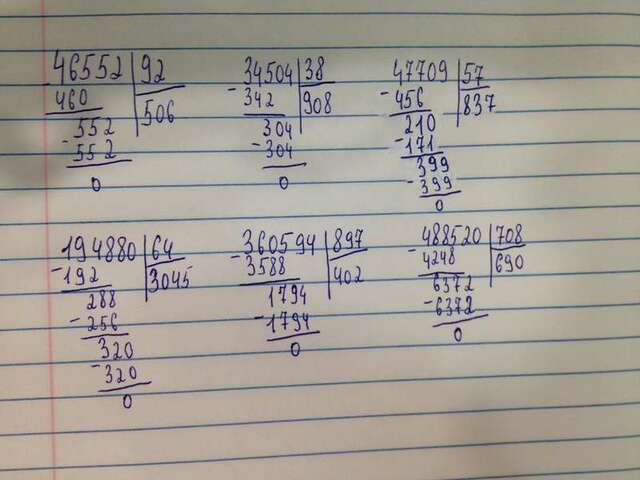 46552 92
460 506
552
- 552
0
34504 38
- 342 908
304
- 304
0
47709 57
- 456 837
210
- 171
399
- 399
0
194880 64
- 192 3045
288
- 256
320
- 320
0
360594 897
- 3588 402
1794
- 1794
0
488520 708
- 4248 690
6372
- 6372
0